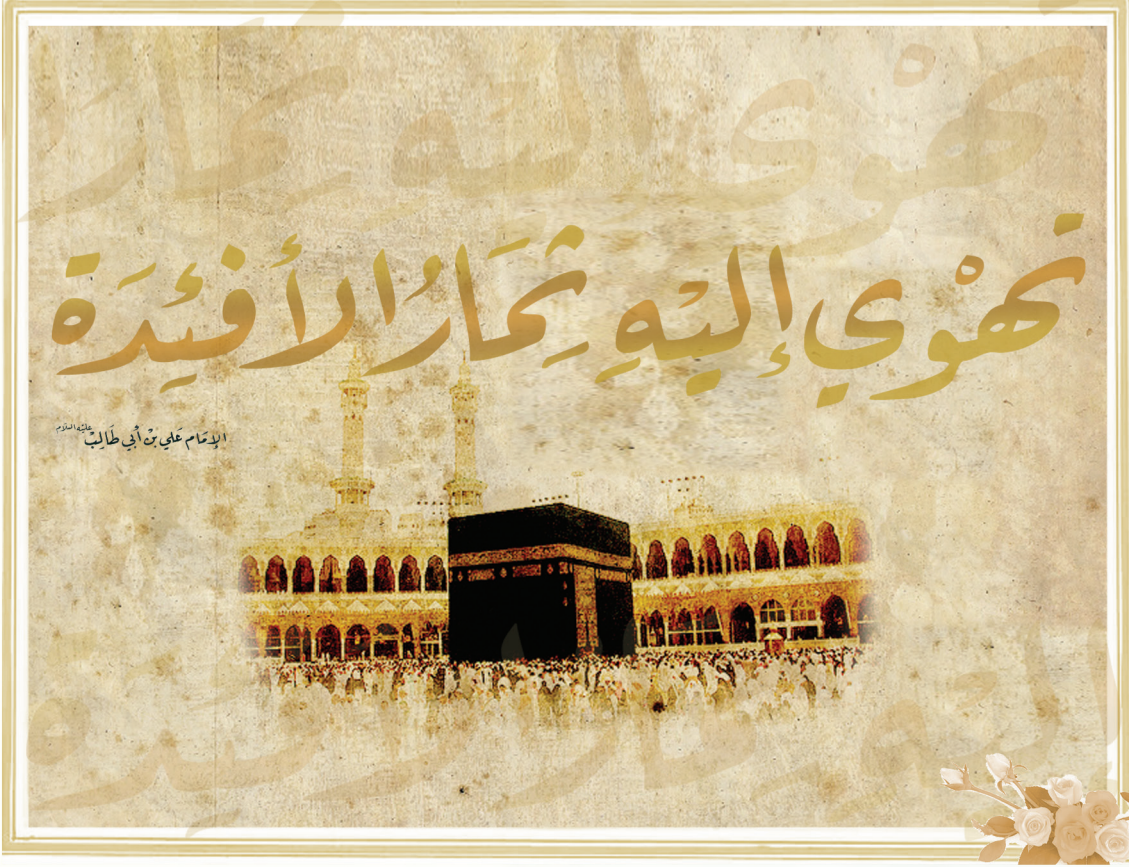 تَهْوِي إِلَيْهِ ثِمَارُ الأَفْئِدَة
الإمَام عَلي بْن أبي طَالِبْ عليه السلام